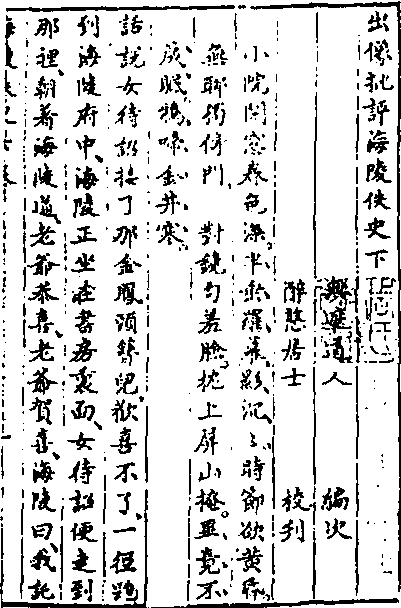 出像批評海陵佚史下
無遮道人 編次
醉憨居士 校刊
小院閉窗春色深半垂羅幕影沉沉時節欲黃昏
無聊獨倚門 對鏡勻若臉枕上屏山掩畢竟不
成眠鴉啼金井寒
話說女待詔接了那金鳳頭簪兒歡喜不了一徑跑
到海陵府中海陵正坐在書房裏面女待詔便走到
那裡朝着海陵道老爺恭喜老爺賀喜海陵曰我託